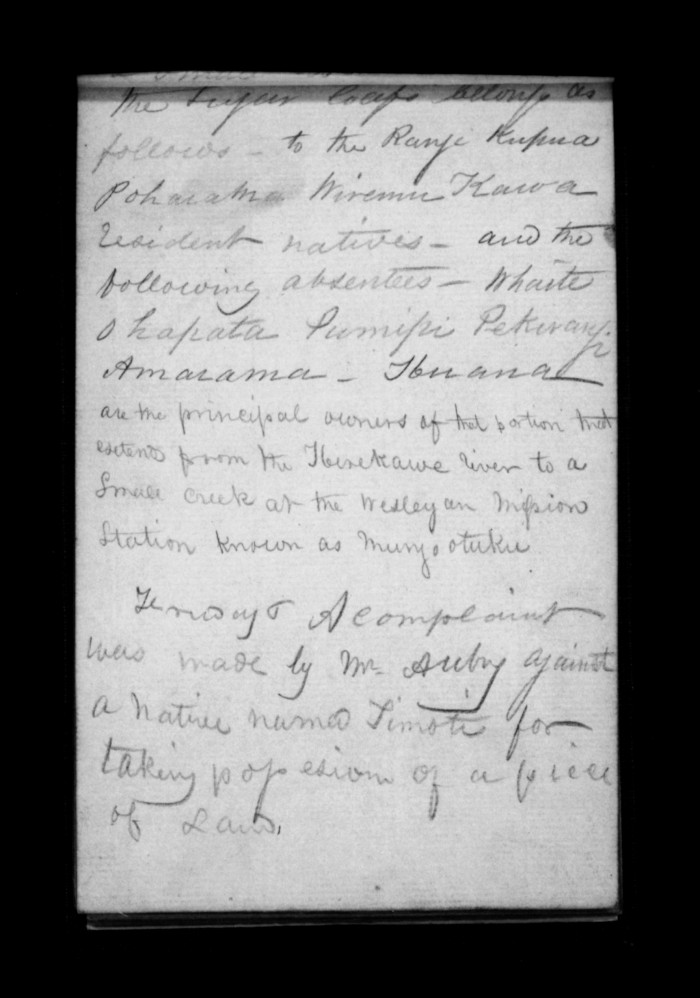 the Sugar Loafs belongs as
follows - to the Rangi Kupua
Poharama Wiremu Kawa
resident natives - and the
following absentees - Whaite
O hapata Pumipi Pekirangi
Amarama - Ihuana
are the principal owners of that portion that
extends from the Therekawe river to a
Small Creek at the Wesleyan Mission
Station known as Mungootuku
Friday 5 A complaint
was made by Mr. Aubry against
a Native named Timoti for
taking possesion of a piece
of Land.